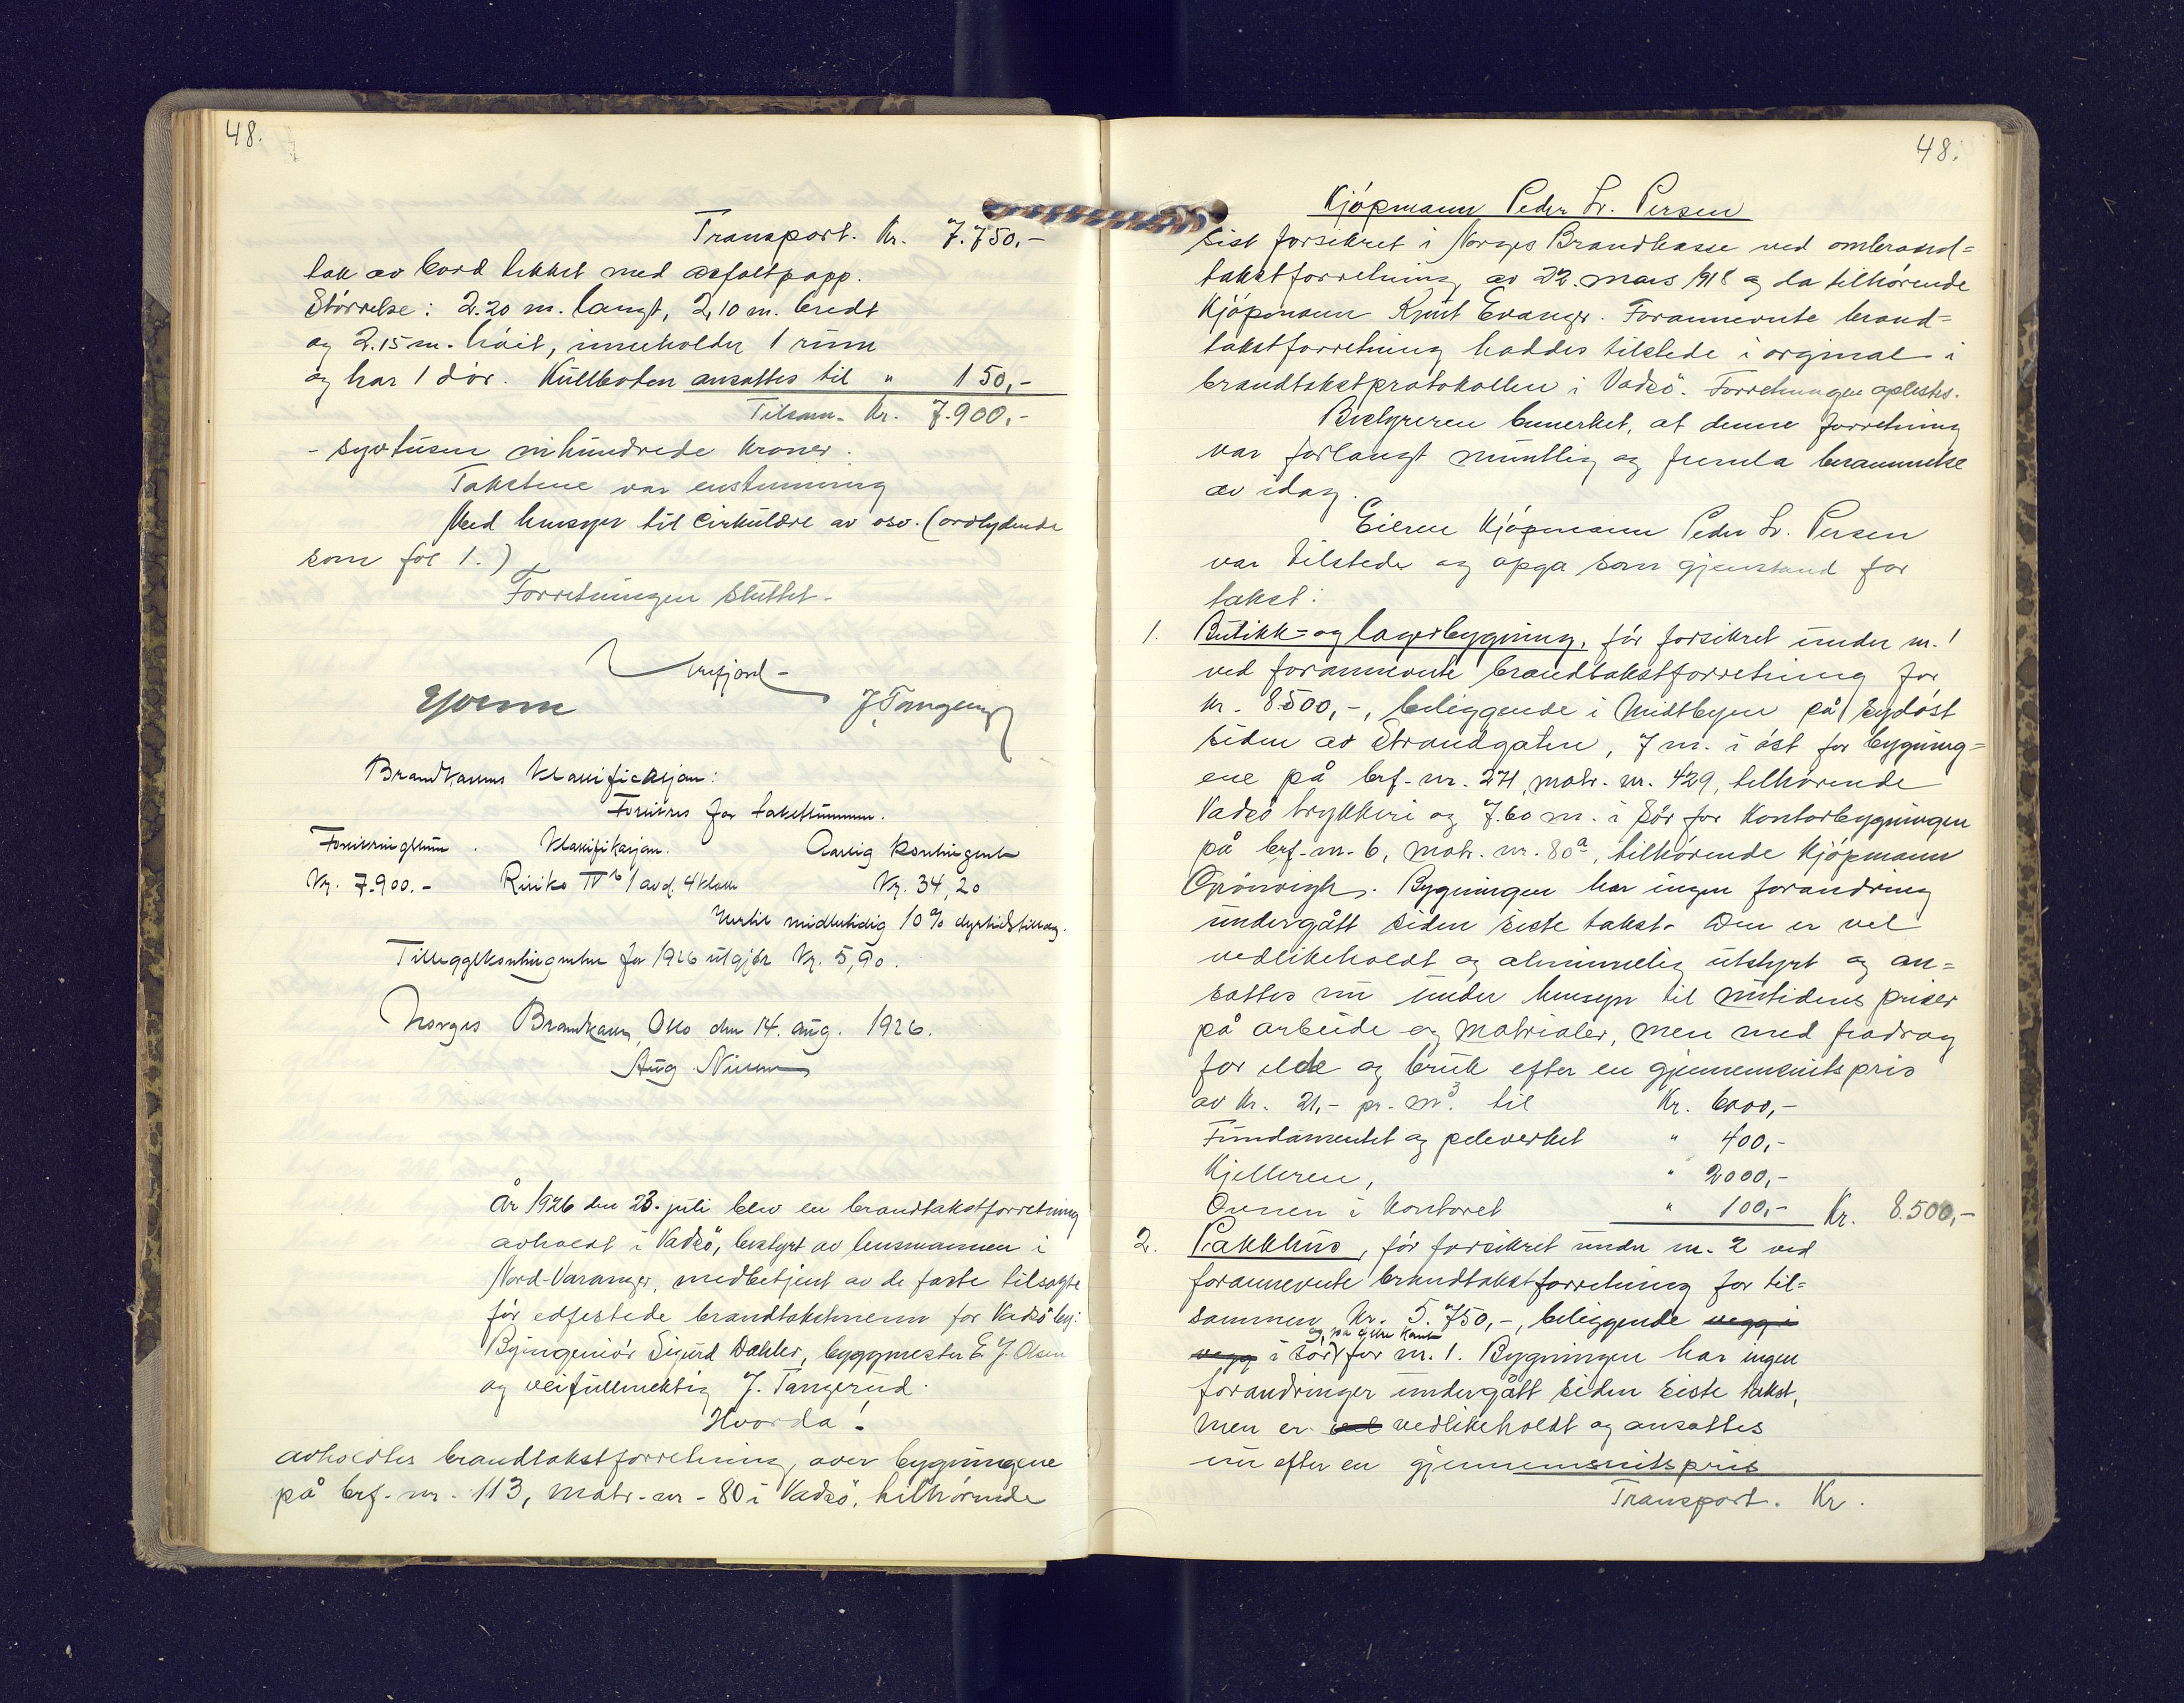 48.
Transport. Kr. 7.750,-
tak av bord tekket med asfaltpapp.
Størrelse: 2.20 m. langt, 2,10 m. bredt
og 2.15 m. höit, inneholder 1 rum
og har 1 dør. Kullboden ansattes til " 150,-
Tilsam. Kr. 7.900,-
- syvtusen nihundrede kroner.
Takstene var enstemmig
Med hensyn til Cirkulære av osv. (ordlydende
som fol 1.)
Forretningen sluttet.
J. Tangerud
Brandkassens klassifikasjon:
Forsikres for takstsummen.
Forsikringssum. Klassifikasjon. Aarlig kontingent
Kr. 7.900.- Risiko IV b 1 avd. 4 klasse Kr. 34,20
Hertil midlertidig 10 % dyrtidstillæg.
Tilleggskontingenten for 1926 utgjör Kr. 5,90.
Norges Brandkasse, Oslo den 14. aug. 1926.
Aug Nissen
År 1926 den 23. juli blev en brandtakstforretning
avholdt i Vadsö, bestyrt av lensmannen i
Nord-Varanger, medbetjent av de faste tilsagte
før edfestede brandtakstmenn for Vadsö by:
Byingeniør Sigurd Dahler, byggmester E. J. Olsen
og veifullmektig J. Tangerud.
Hvorda!
avholdtes brandtakstforretning over bygningene
på brf. nr. 113, matr. nr. 80 i Vadsö, tilhørende
48.
Kjöpmann Peder Lr. Persen
sist forsikret i Norges Brandkasse ved ombrand=
takstforretning av 22. mars 1918 og da tilhörende
Kjöpmann Knut Evanger. Forannevnte brand=
takstforretning haddes tilstede i orginal i
brandtakstprotokollen i Vadsö. Forretningen oplestes.
Bestyreren bemerket, at denne forretning
var forlangt muntlig og fremla berammelse
av idag.
Eieren Kjöpmann Peder Lr. Persen
var tilstede og opga som gjenstand for
takst:
1. Butikk= og lagerbygning, för forsikret under nr. 1
ved forannevnte brandtakstforretning for
kr. 8.500,-, beliggende i Midtbyen på sydöst
siden av Strandgaten, 7 m. i öst for bygning=
ene på brf. nr. 271, matr. nr. 429, tilhörende
Vadsö trykkeri og 7.60 m. i sör for Kontorbygningen
på brf. nr. 6, matr. nr. 80 a, tilhörende Kjöpmann
Grönvigh. Bygningen har ingen forandring
undergått siden siste takst. Den er vel
vedlikeholdt og alminnelig utstyrt og an=
sattes nu under hensyn til nutidens priser
på arbeide og matrialer, men med fradrag
for elde og bruk efter en gjennemsnitspris
av Kr. 21,- pr. m3. til Kr. 6000,-
Fundamentet og peleverket " 400,-
Kjelleren, " 2000,-
Ovnen i kontoret " 100,- Kr. 8.500,-
2. Pakkhus, för forsikret under nr. 2 ved
forannevnte brandtakstforretning for til=
sammen Kr. 5.750,-, beliggende vegg i
og på ytre kant
vegg i sör for nr. 1. Bygningen har ingen
forandringer undergått siden siste takst,
men er vel vedlikeholdt og ansattes
nu efter en gjennemsnitspris
Transport. Kr.